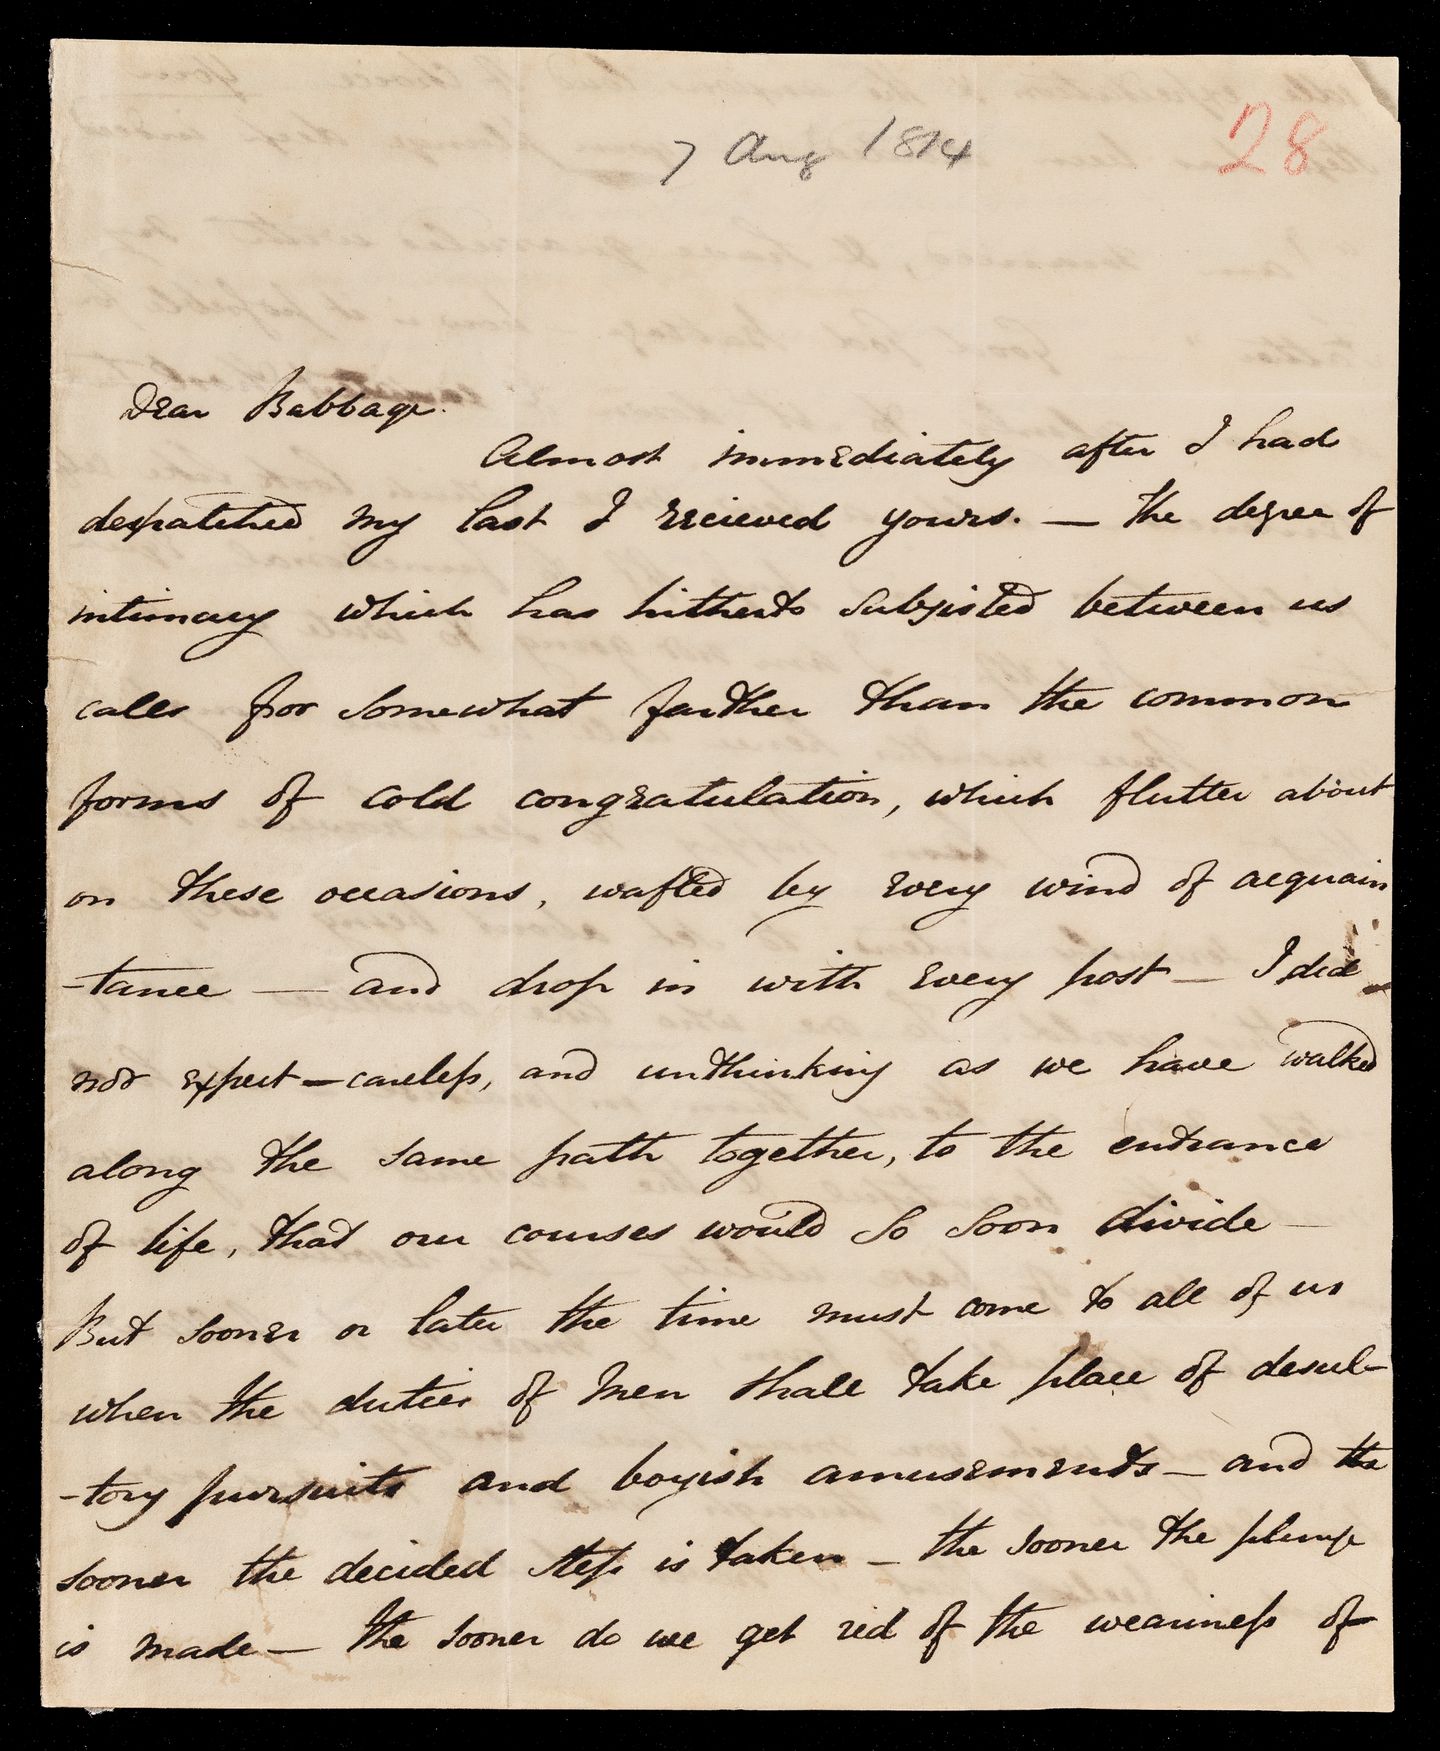 7 Aug 1814
28
Dear Babbage.
Almost immediately after I had
despatched my last I recieved yours. — The degree of
intimacy which has hitherto subsisted between us
calls for somewhat farther than the common
forms of cold congratulation, which flutter about
on these occasions, wafted by every wind of acquain
-tance — and drop in with every post — I did
not expect — careless, and unthinking as we have walked
along the same path together, to the entrance
of life, that our courses would so soon divide —
But sooner or later the time must come to all of us
when the duties of Men shall take place of desul-
-tory pursuits and boyish amusements — and the
sooner the decided step is taken — the sooner the plunge
is made — the sooner do we get rid of the weariness of